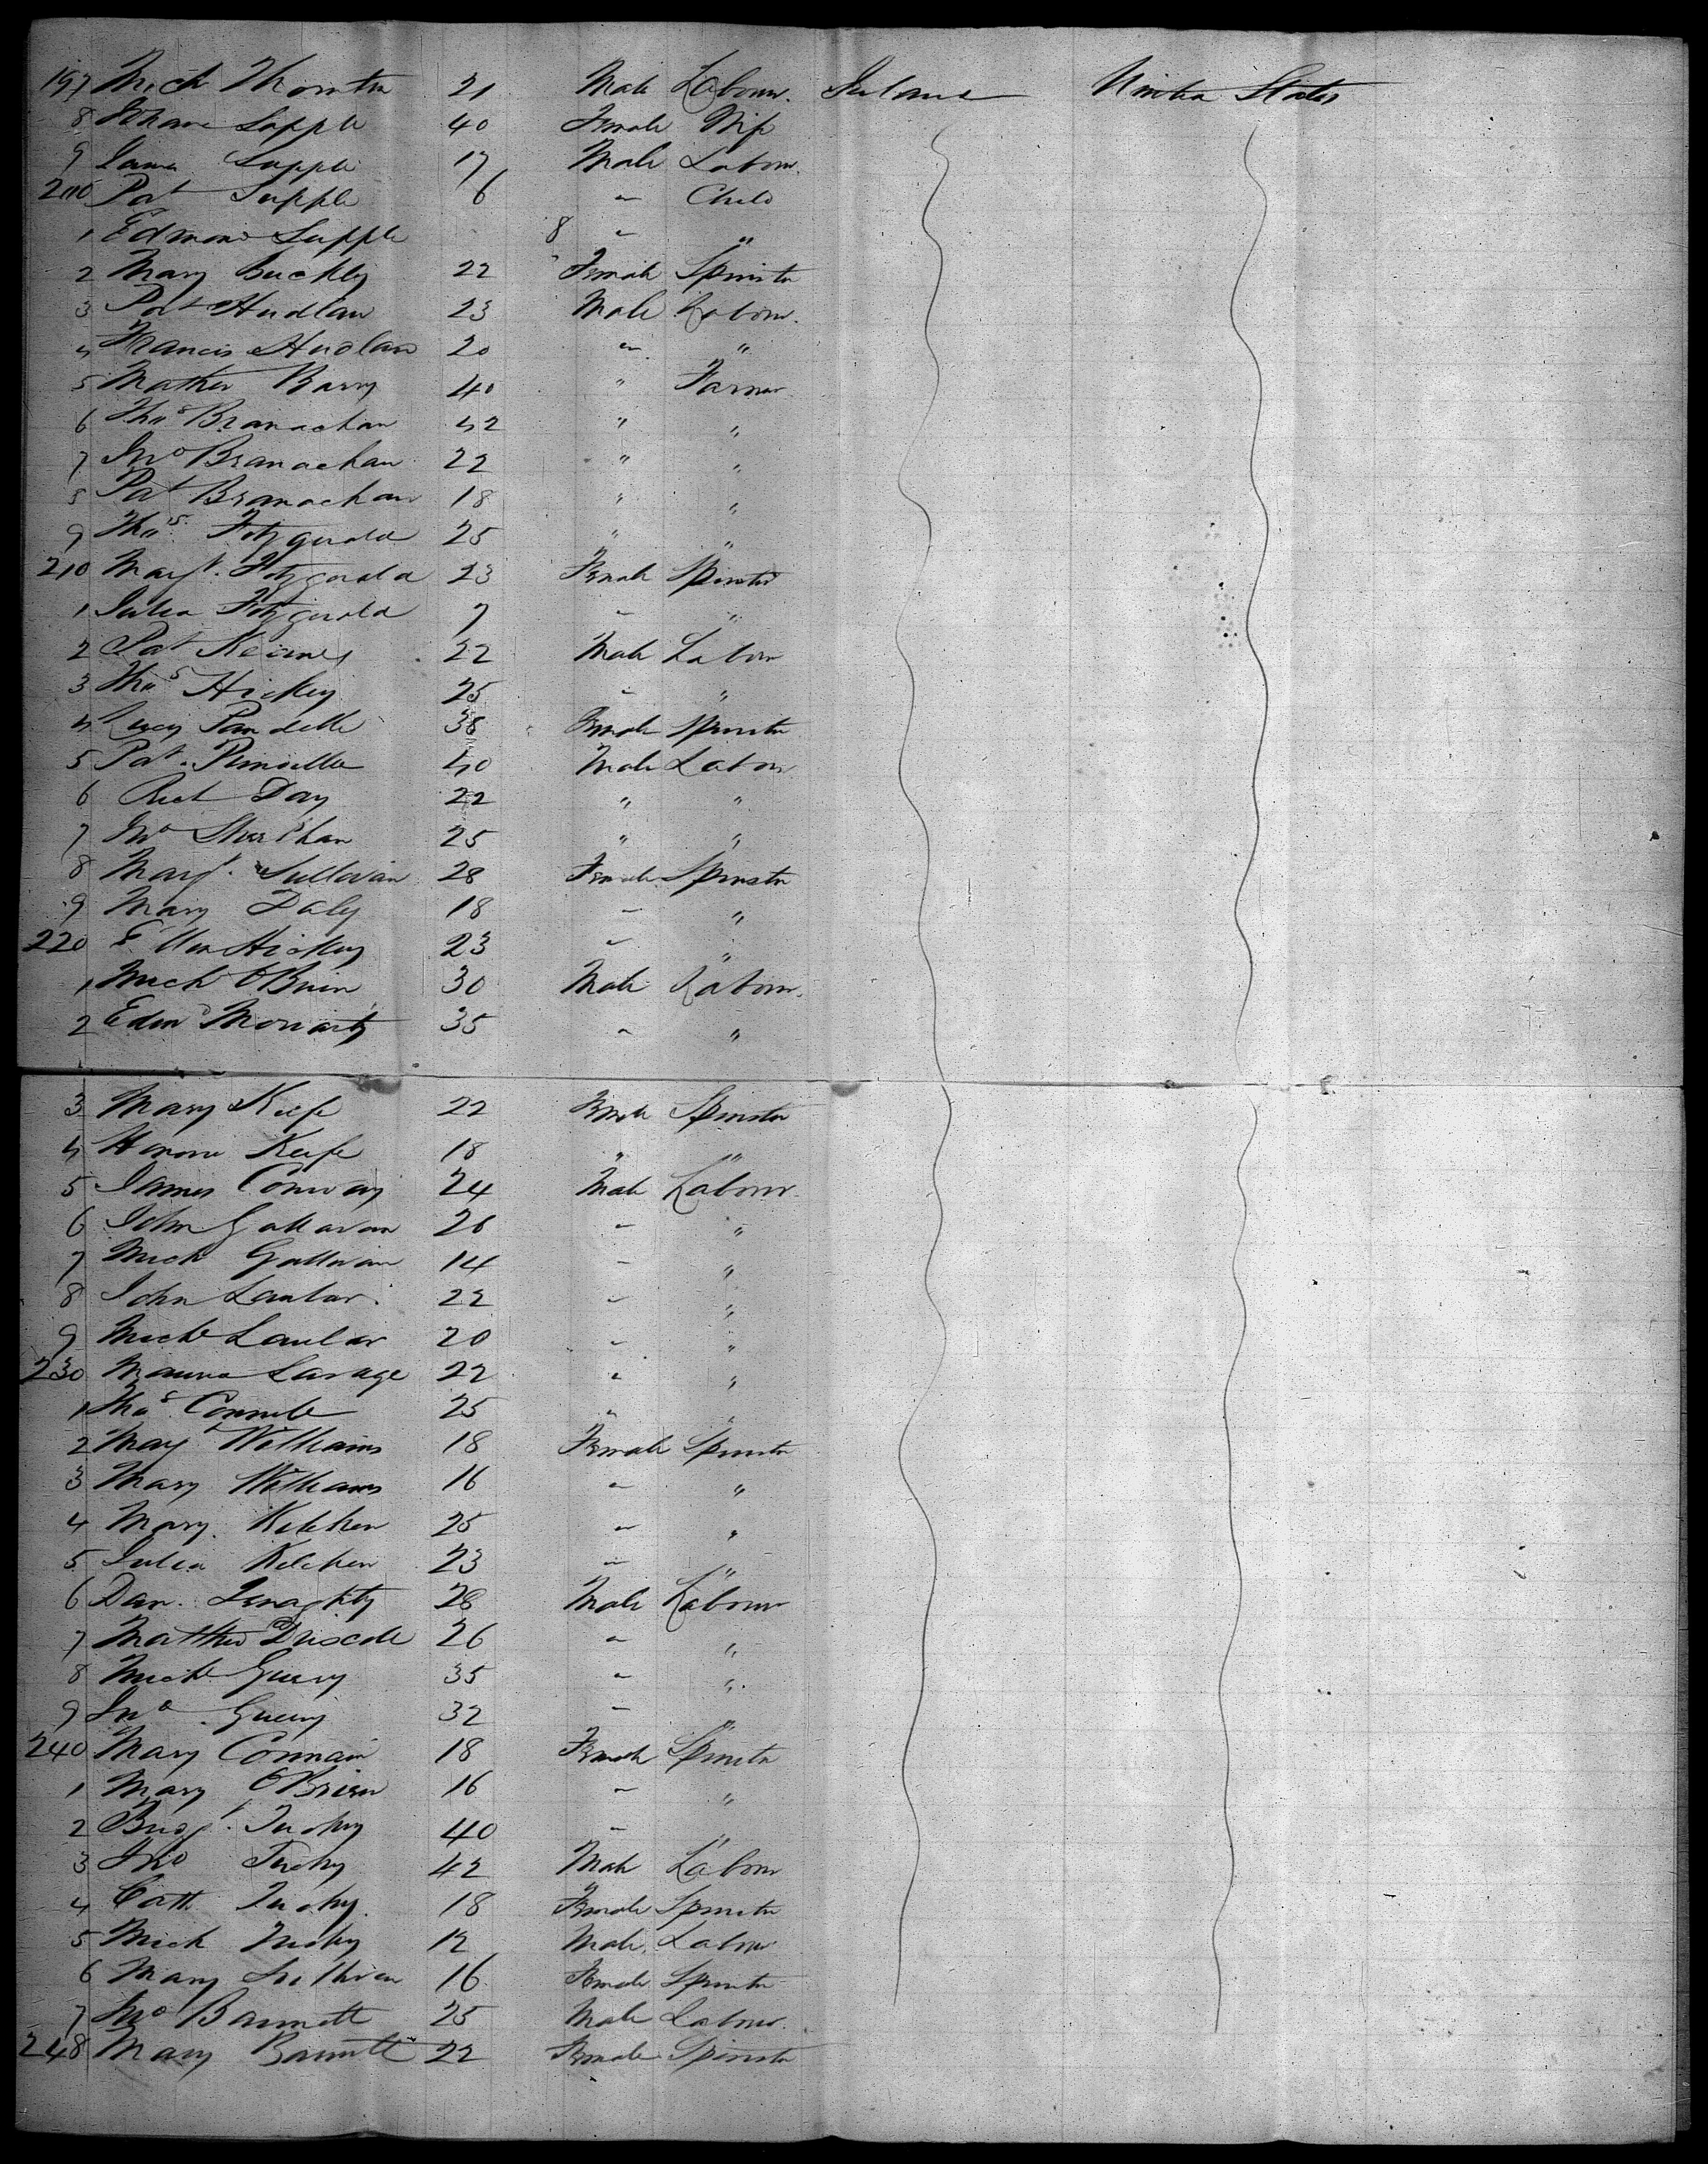 197 Mich Thornton 21 Male Labour. Ireland United States
8 Johana Supple 40 Female Wife
9 James Supple 17 Male Labour.
200 Pat Supple 6 " Child
1 Edmond Supple 8 " "
2 Mary Buckley 22 Female Spinster
3 Pat Hudlan 23 Male Labour.
4 Francis Hudlan 20 " "
5 Mathew Barry 40 " Farmer
6 Thos Branachan 42 " "
7 Jno Branachan 22 " "
8 Pat Branachan 18 " "
9 Thos. Fitzgerald 25 " "
210 Margt. Fitzgerald 23 Female Spinster
1 Julia Fitzgerald 7 " "
2 Pat Keaney 22 Male Labour
3 Thos Hickey 25 " "
4 Lucy 38 Female Spinster
5 Pat. 40 Male Labour
6 Rich Day 22 " "
7 Jno 25 " "
8 Margt. Sullivan 28 Female Spinster
9 Mary Daly 18 " "
220 Ellen Hickey 23 " "
1 Mich O'Brien 30 Male Labour.
2 Edmd Moriarty 35 " "
3 Mary Keefe 22 Female Spinster
4 Honora Keefe 18 " "
5 James Conway 24 Male Labour.
6 John Gallavan 26 " "
7 Mich Gallivan 14 " "
8 John Lawlor. 22 " "
9 Michl Lawlor 20 " "
230 Maurice Savage 22 " "
1 Thos. 25 " "
2 Margt Williams 18 Female Spinster
3 Mary Williams 16 " "
4 Mary. Kelcher 25 " "
5 Julia Kelcher 23 " "
6 Dan. 28 Male Labour
7 Matthew Driscole 26 " "
8 Michl Guery 35 " "
9 Jno. Guery 32 " "
240 Mary 18 Female Spinster
1 Mary O'Brien 16 " "
2 Bridgt. Tuohy 40 " "
3 Jno Tuohy 42 Male Labour
4 Cath Tuohy. 18 Female Spinster
5 Mich Tuohy 12 Male Labour
6 Mary Sullivan 16 Female Spinster
7 Jno Barrett 25 Male Labour.
248 Mary Barrett 22 Female Spinster